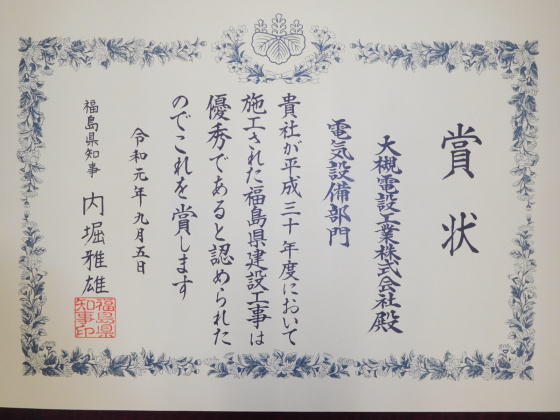 賞状
大槻電設工業株式会社殿
電気設備部門
貴社が平成三十年度において
施工された福島県建設工事は
優秀であると認められた
のでこれを賞します
令和元年九月五日
福島県知事 内堀雅雄
福島県
知事印